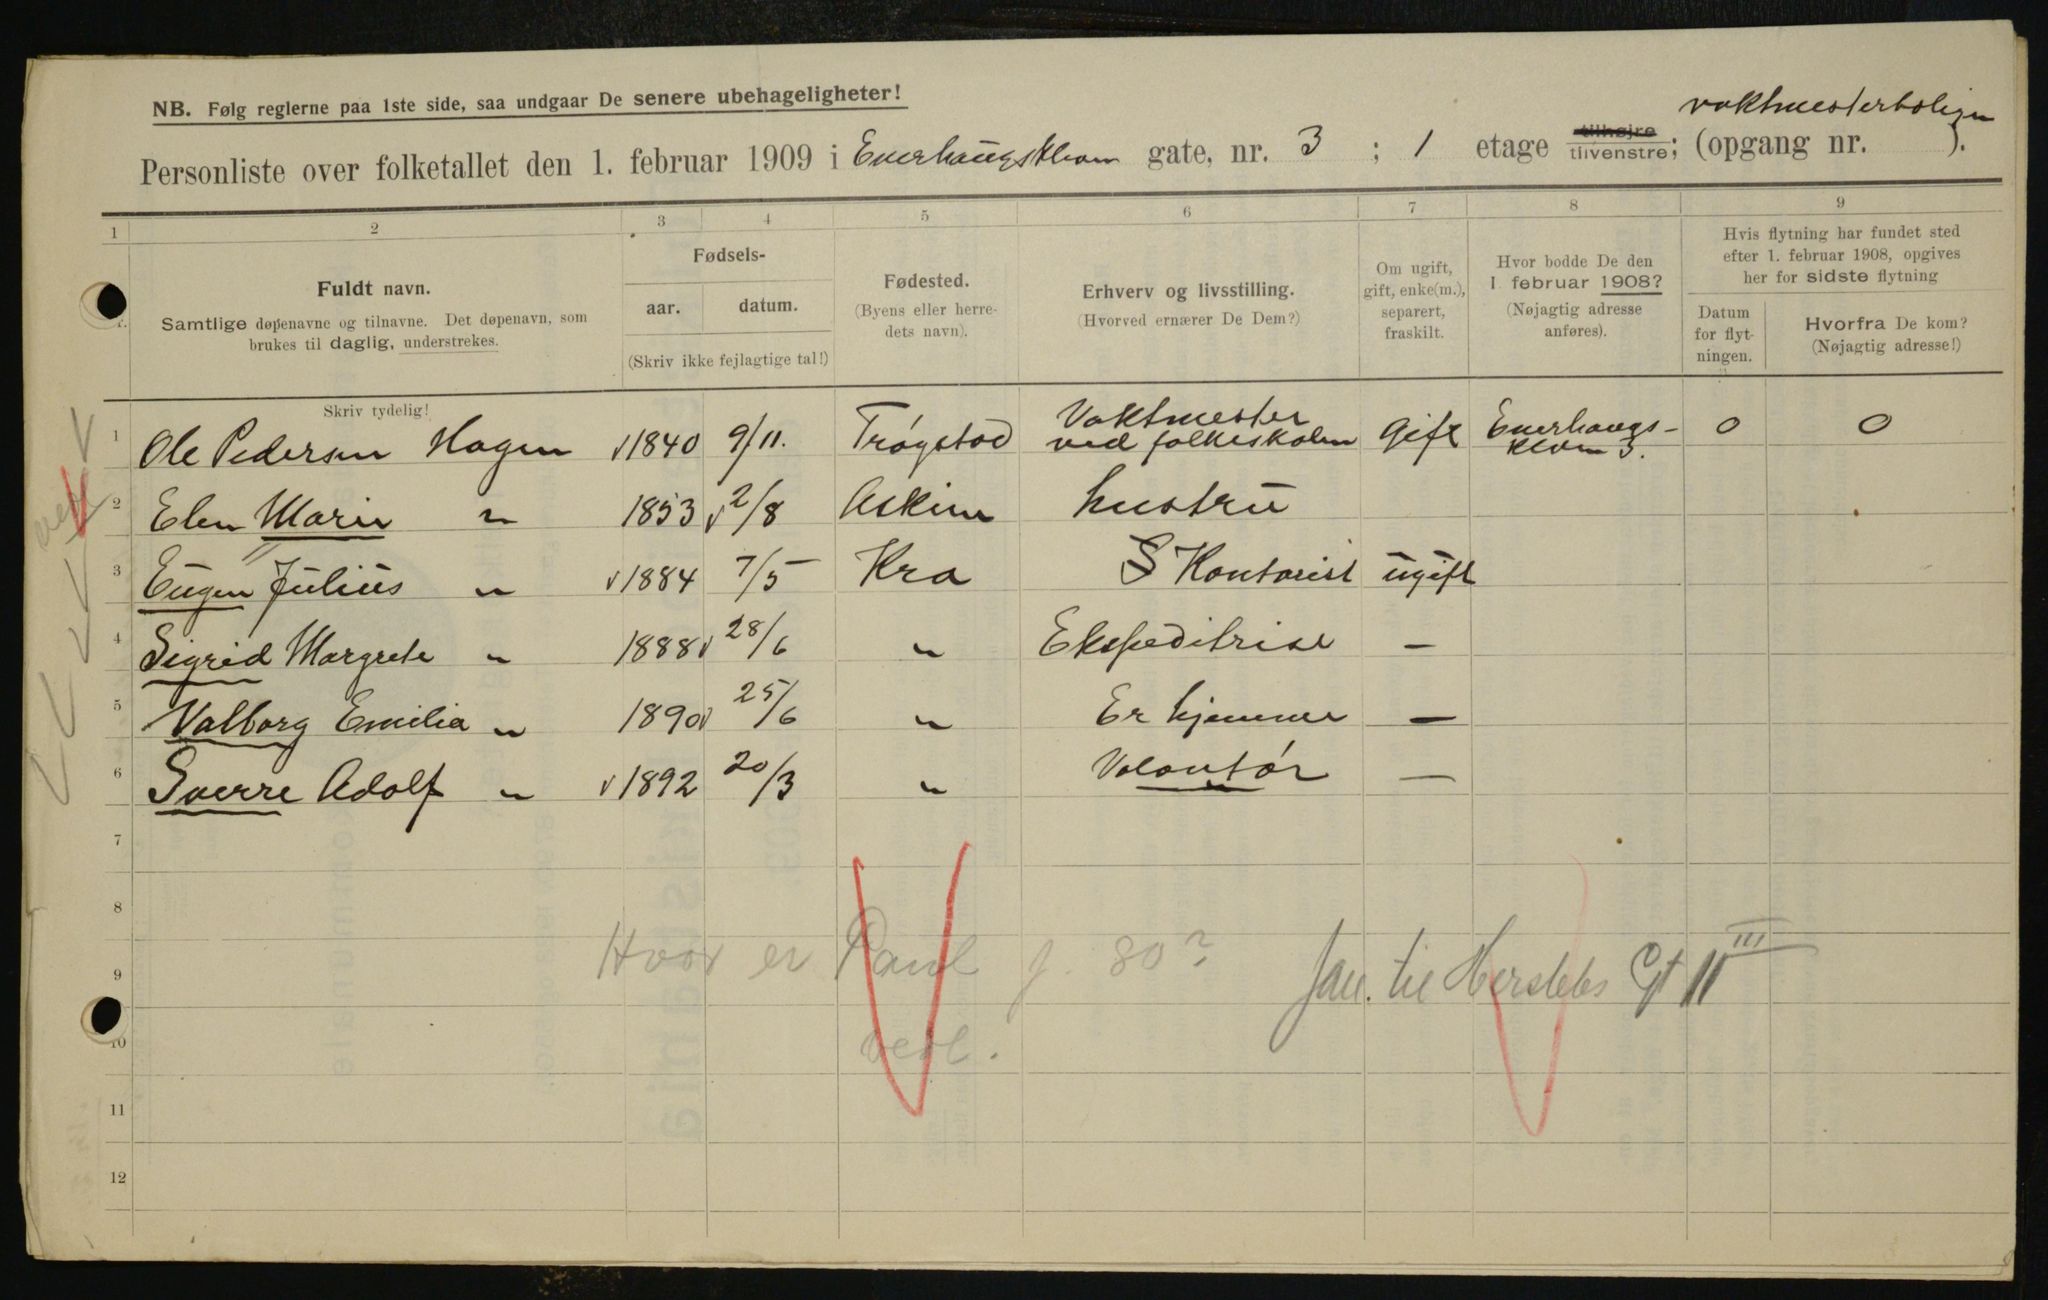 NB. Følg reglerne paa 1ste side, saa undgaar De senere ubehageligheter!
vaktmesterboligen
Personliste over folketallet den 1. februar 1909 i Enerhaugsklevn gate, nr. 3 ; 1 etage tilhøjre tilvenstre; (opgang nr. ).
1 2 3 4 5 6 7 8 9
Fuldt navn.
Samtlige døpenavne og tilnavne. Det døpenavn, som
brukes til daglig, understrekes.
Fødsels-
aar. datum.
(Skriv ikke fejlagtige tal!)
Fødested.
(Byens eller herre-
dets navn).
Erhverv og livsstilling.
(Hvorved ernærer De Dem?)
Om ugift,
gift, enke(m.),
separert,
fraskilt.
Hvor bodde De den
1. februar 1908?
(Nøjagtig adresse
anføres).
Hvis flytning har fundet sted
efter 1. februar 1908, opgives
her for sidste flytning
Datum
for flyt-
ningen.
Hvorfra De kom?
(Nøjagtig adresse!)
Skriv tydelig!
1 Ole Pedersen Hagen 1840 9/11. Trøgstad Vaktmester ved folkeskolen gift Enerhaugs-klevn 3. 0 0
2 Elen Marie " 1853 2/8 Askim hustru
3 Eugen Julius " 1884 7/5 Kra S Kontorist ugift
4 Sigrid Margrete " 1888 28/6 " Ekspeditrise —
5 Valborg Emilia " 1890 25/6 " Er hjemme —
6 Sverre Adolf " 1892 20/3 " Volontør —
7
8
9 Hvor er Paul f. 80? Jan. til Herslebs Gt 11 III
10
11
12